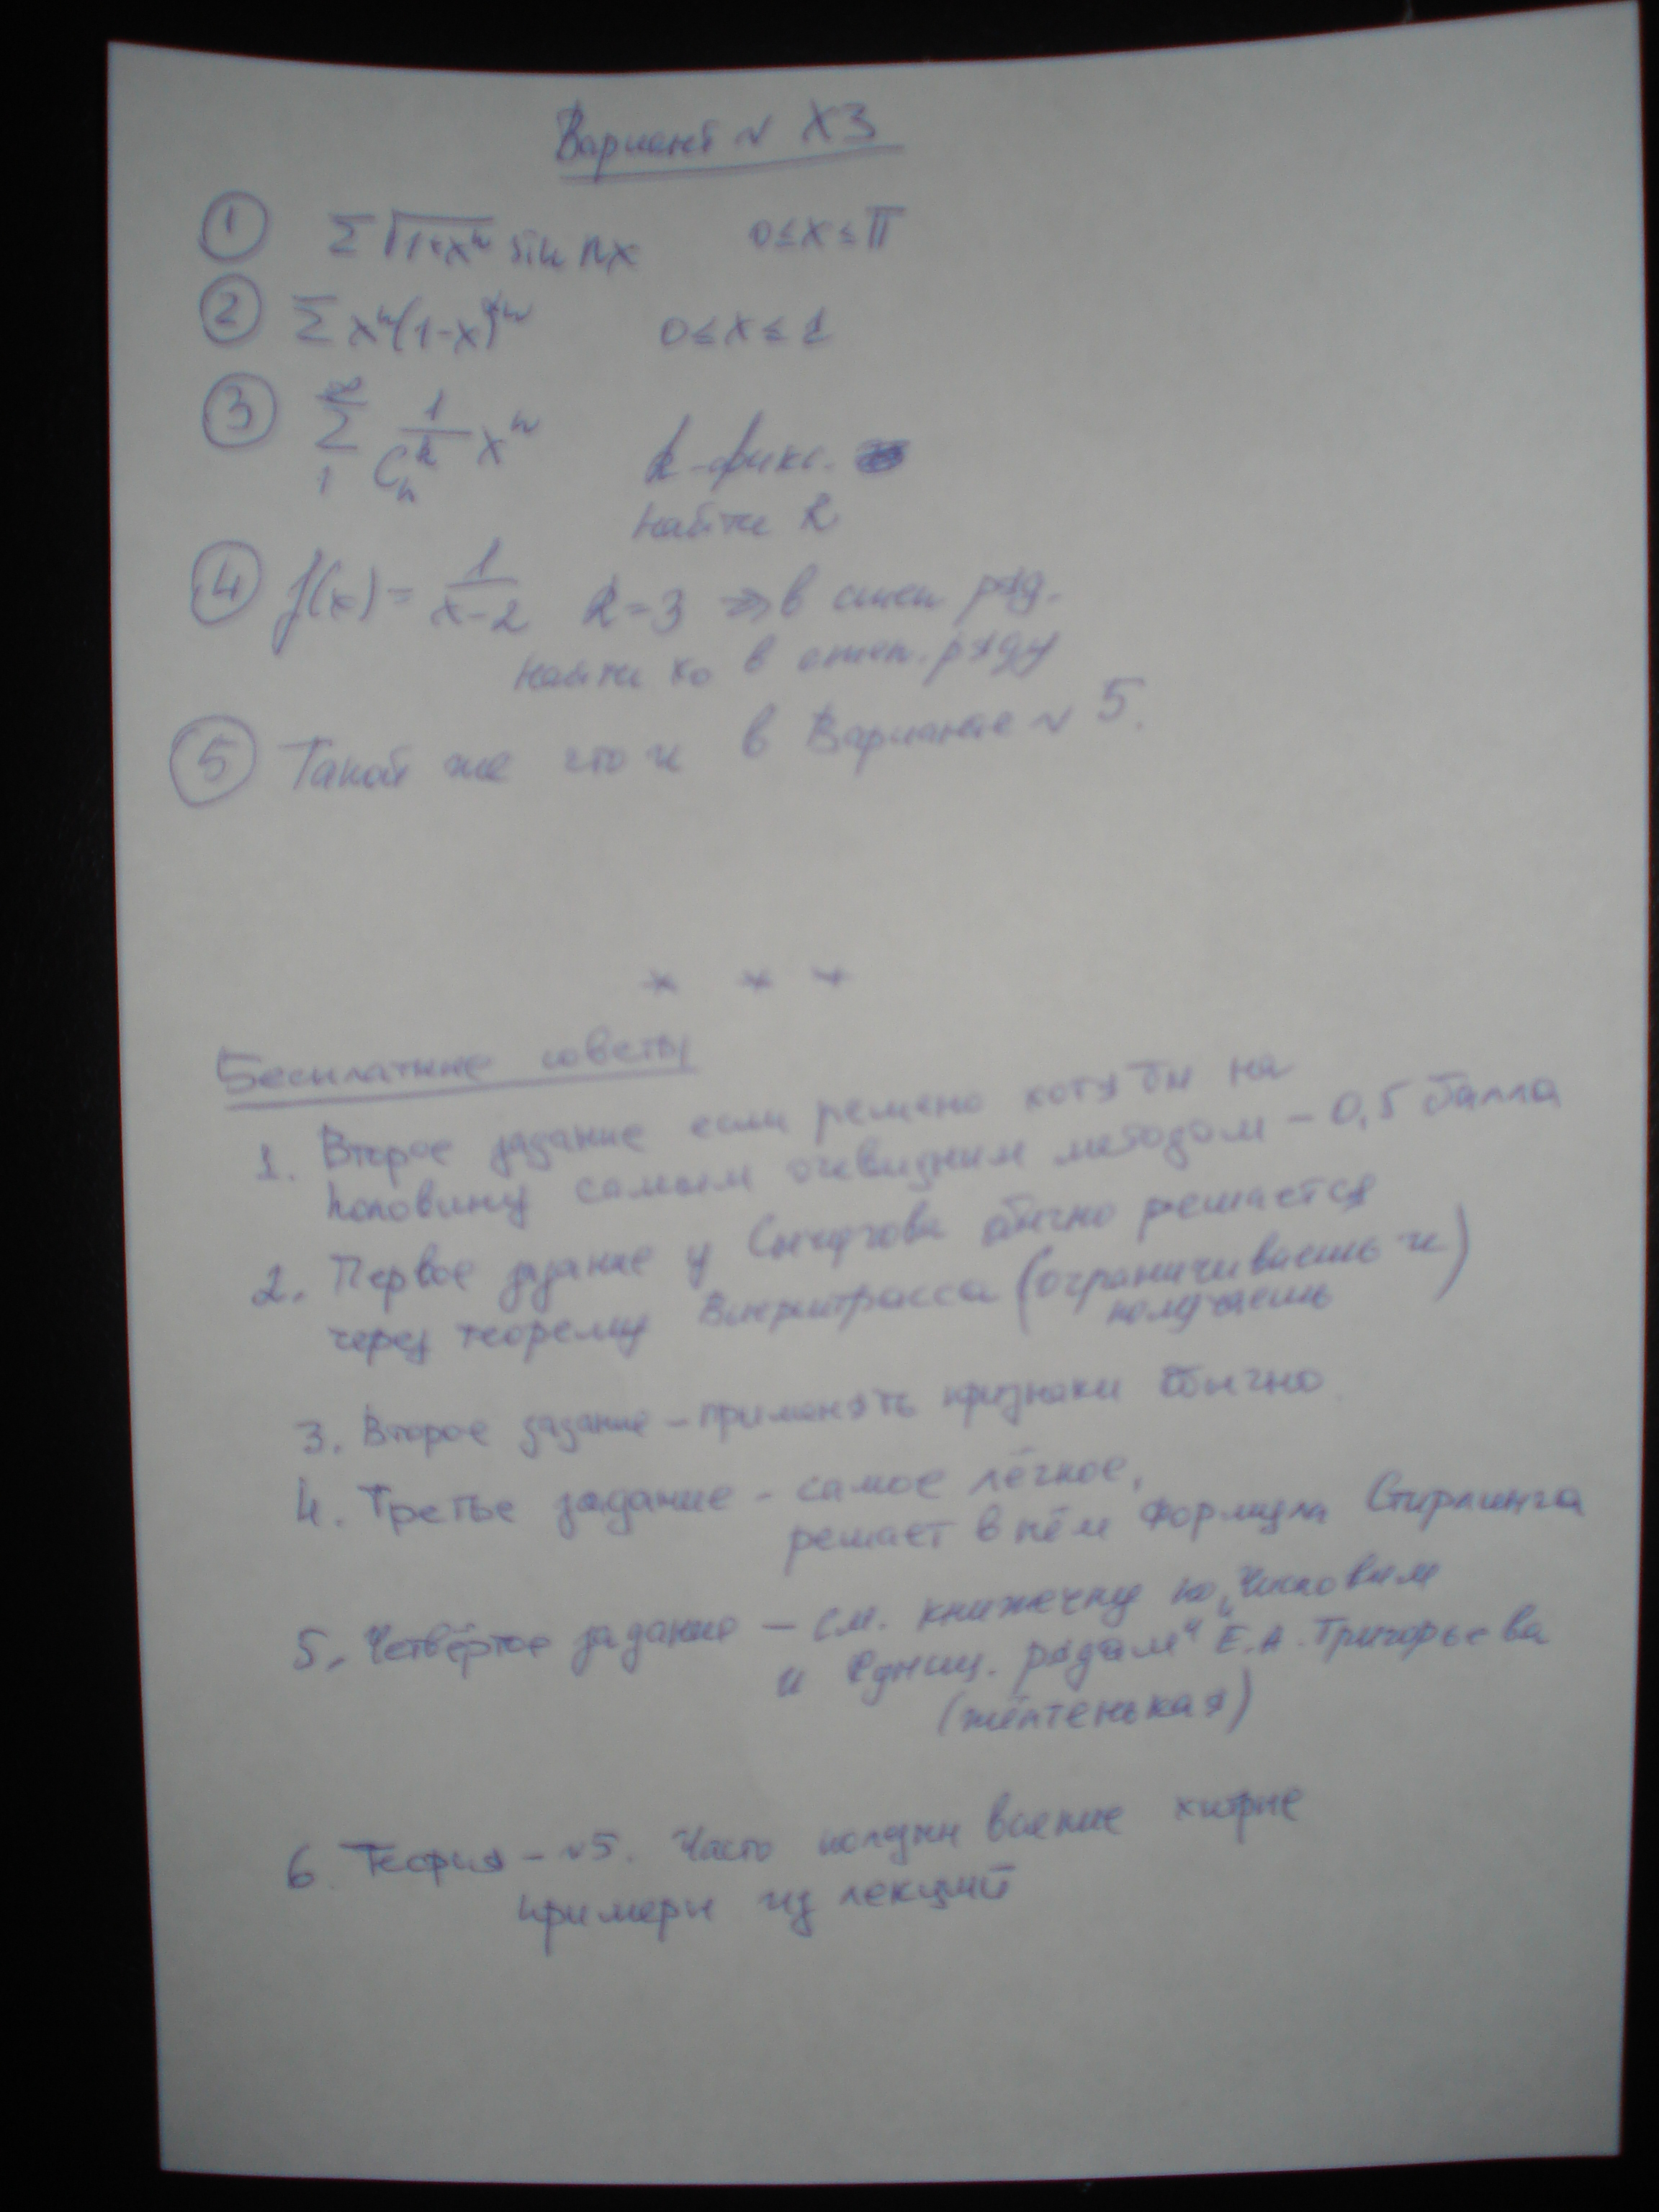 Вариант N ХЗ
① Σ √1+x^n sin nx 0≤x≤π
② Σ x^n(1-x)^n 0≤x≤1
③ ∞ Σ 1 1/C_n^k x^n k-фикс.
Найти R
④ f(x) = 1/(x-2) R=3 => в степ ряд.
Найти x₀ в степ. ряду
⑤ Такой же что и в Варианте N 5.
* * *
Бесплатные советы
1. Второе задание если решено хотя бы на
половину самым очевидным методом – 0,5 балла
2. Первое задание у обычно решается
через теорему Вейерштрасса (ограничиваешь и
получаешь)
3. Второе задание – применять признаки обычно
4. Третье задание – самое лёгкое,
решает в нём формула Стирлинга
5. Четвёртое задание – см. книжечку по „Числовым
и рядам“ Е.А. Григорьева
(жёлтенькая)
6. Теория – N5. Часто хитрые
примеры из лекций